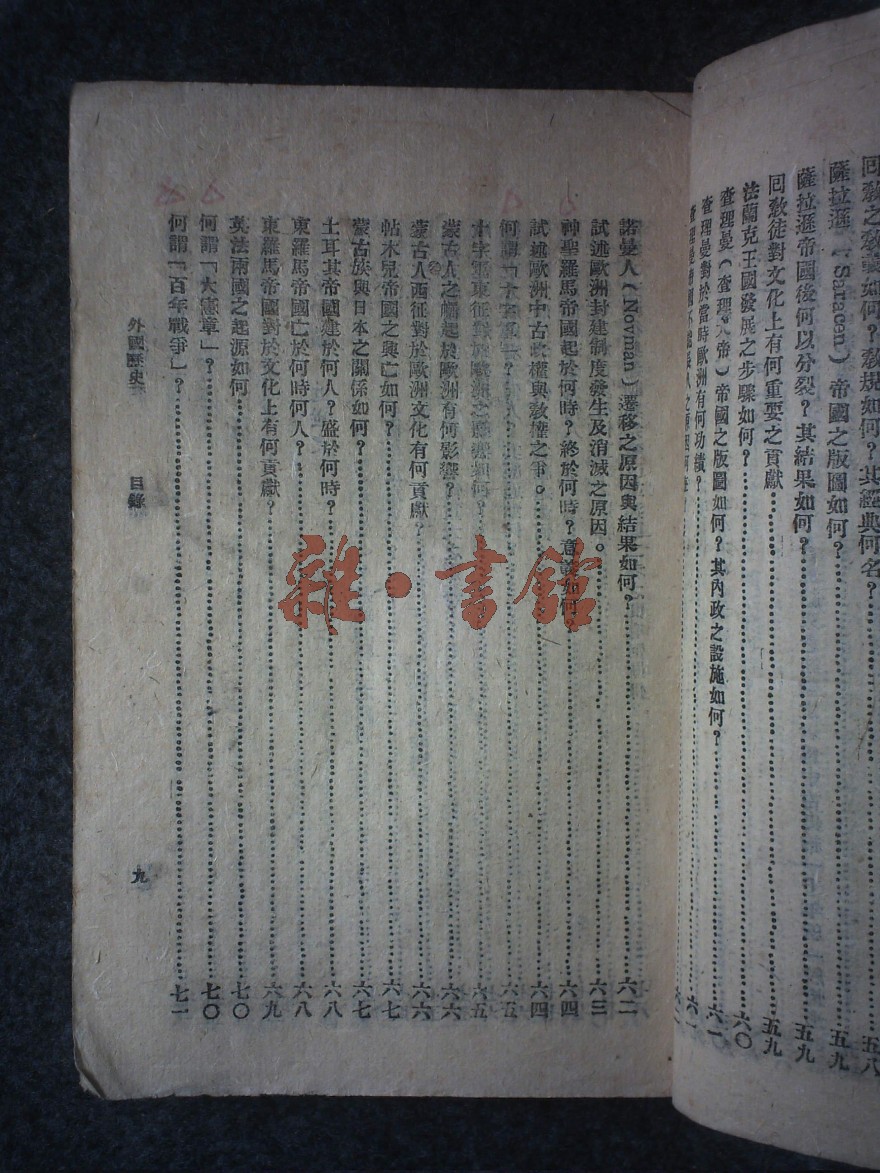 回教之教義如何？教規如何？其經典何名？……五八
薩拉遜（Saracen）帝國之版圖如何？……五九
薩拉遜帝國後何以分裂？其結果如何？……五九
回教徒對文化上有何重要之貢獻……五九
法蘭克王國發展之步驟如何？……六〇
查理曼（查理大帝）帝國之版圖如何？其內政之設施如何？……六一
查理曼對於當時歐洲有何功績？……六一
查理曼帝國不能
諾曼人（Novman）遷移之原因與結果如何？……六二
試述歐洲封建制度發生及消滅之原因。……六三
神聖羅馬帝國起於何時？終於何時？意義如何？……六四
試述歐洲中古政權與教權之爭。……六四
何謂「十字軍」？……六五
十字軍東征對於歐洲之影響如何？……六五
蒙古人之崛起於歐洲有何影響？……六六
蒙古人西征對於歐洲文化有何貢獻？……六六
帖木兒帝國之興亡如何？……六七
蒙古族與日本之關係如何？……六七
土耳其帝國建於何人？盛於何時？……六八
東羅馬帝國亡於何時何人？……六八
東羅馬帝國對於文化上有何貢獻？……六九
英法兩國之起源如何……七〇
何謂「大憲章」？……七〇
何謂「百年戰爭」？……七一
外國歷史　目錄　九
雜·書館